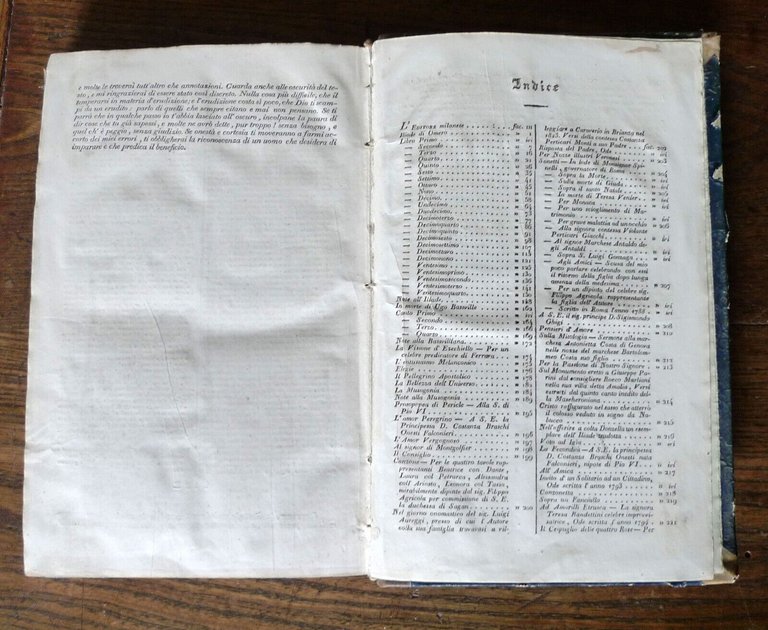 e molte le troverai tutt'altro che annotazioni. Guarda anche alle oscurità del te-
sto, e mi ringrazierai di essere stato così discreto. Nulla cosa più difficile, che il
temperarsi in materia d'erudizione; e l'erudizione costa sì poco, che Dio ti scam-
pi da un erudito: parlo di quelli che sempre citano e mai non pensano. Se ti
parrà che in qualche passo io t'abbia lasciato all'oscuro, incolpane la paura di
dir cose che tu già sapessi, e molte ne avrò dette, pur troppo! senza bisogno, e
quel ch'è peggio, senza giudizio. Se onestà e cortesia ti moveranno a farmi ac-
corto dei miei errori, ti obbligherai la riconoscenza di un uomo che desidera di
imparare e che predica il beneficio.
Indice
L'Editore milanese . . . fac. III
Iliade di Omero
Libro Primo
— Secondo
— Terzo
— Quarto
— Quinto
— Sesto
— Settimo
— Ottavo
— Nono
— Decimo
— Undecimo
— Duodecimo
— Decimoterzo
— Decimoquarto
— Decimoquinto
— Decimosesto
— Decimosettimo
— Decimottavo
— Decimonono
— Ventesimo
— Ventesimoprimo
— Ventesimosecondo
— Ventesimoterzo
— Ventesimoquarto
Note all'Iliade
In morte di Ugo Bassville
Canto Primo
— Secondo
— Terzo
— Quarto
Note alla Bassvilliana
La Visione d'Ezechiello — Per un
celebre predicatore di Ferrara
L'entusiasmo Melanconico
Elegie
Il Pellegrino Apostolico
La Bellezza dell'Universo
La Musogonia
Note alla Musogonia
Prosopopea di Pericle — Alla S. di
Pio VI . . . » 195
L'amor Peregrino — A S. E. la
Principessa D. Costanza Braschi
Onesti Falconieri . . . » 196
L'Amor Vergognoso . . . » 197
Al signor di Montgolfier . . . » 198
Il Consiglio . . . » 199
Canzone — Per le quattro tavole rap-
presentanti Beatrice con Dante,
Laura col Petrarca, Alessandra
coll'Ariosto, Leonora col Tasso,
mirabilmente dipinte dal sig. Filippo
Agricola per commissione di S. E.
la duchessa di Sagan . . . » 200
Nel giorno onomastico del sig. Luigi
Aureggi, presso di cui l'Autore
colla sua famiglia trovavasi a vil-
leggiare a Caraverio in Brianza nel
1823. Versi della contessa Costanza
Perticari Monti a suo Padre . fac. 202
Risposta del Padre, Ode . . . » ivi
Per Nozze illustri Veronesi
Sonetti — In lode di Monsignor Spi-
nelli, governatore di Roma . . . » 204
— Sopra la Morte . . . » ivi
— Sulla morte di Giuda . . . » ivi
— Sopra il santo Natale
— In morte di Teresa Venier
— Per Monaca
— Per uno scioglimento di Ma-
trimonio
— Per grave malattia ad un occhio » 206
— Alla signora contessa Violante
Perticari Giacchi
— Al signor Marchese Antaldo de-
gli Antaldi
— Sopra S. Luigi Gonzaga . . . » ivi
— Agli Amici — Scusa del mio
poco parlare celebrando con essi
il ritorno della figlia dopo lunga
assenza della medesima . . . » 207
— Per un dipinto del celebre sig.
Filippo Agricola rappresentante
la figlia dell'Autore
— Scritto in Roma l'anno 1788
A S. E. il sig. principe D. Sigismondo
Ghigi . . . » 208
Pensieri d'Amore
Sulla Mitologia — Sermone alla mar-
chesa Antonietta Costa di Genova
nelle nozze del marchese Bartolom-
meo Costa suo figlio . . . » 212
Per la Passione di Nostro Signore . » 213
Sul Monumento eretto a Giuseppe Pa-
rini dal consigliere Rocco Marliani
nella sua villa detta Amalia, Versi
estratti dal quinto canto inedito del-
la Mascheroniana . . . » 214
Cristo raffigurato nel sasso che atterrò
il colosso veduto in sogno da Na-
bucco
Nell'offerire a colta Donzella un esem-
plare dell'Iliade tradotta . . . » 216
Voto ad Igia . . . » ivi
La Fecondità — A S. E. la principessa
D. Costanza Braschi Onesti nata
Falconieri, nipote di Pio VI. . . » ivi
All'Amica
Invito d'un Solitario ad un Cittadino,
Ode scritta l'anno 1793 . . . » ivi
Canzonetta . . . » 218
Sopra un Fanciullo . . . » 219
Ad Amarilli Etrusca — La signora
Teresa Bandettini celebre improvvi-
satrice, Ode scritta l'anno 1794 . » 221
Il Cespuglio delle quattro Rose — Per